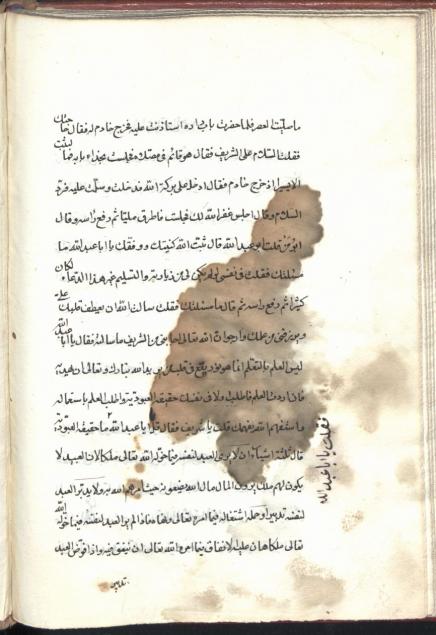 ما صليت العصر فلما حضرت باب داره استاذنت عليه فخرج خادم له فقال ما حاجتك
فقلت السلام على الشريف فقال هو قائم في مصلاه فجلست بحذاء بابه فما لبثت
الا يسيرا اذ خرج خادم فقال ادخل على بركة الله فدخلت وسلمت عليه فرد
السلام وقال اجلس غفر الله لك فجلست فاطرق مليا ثم رفع راسه وقال
ابو من قلت ابو عبد الله قال ثبت الله كنيتك ووفقك يا ابا عبد الله ما
مسئلتك فقلت في نفسي لو لم يكن لي من زيارته والتسليم غير هذا الدعاء لكان
كثيرا ثم رفع راسه ثم قال ما مسئلتك فقلت سالت الله ان يعطف قلبك علي
ويرزقني من علمك وارجو ان الله تعالى اجابني في الشريف ما سالته فقال يا ابا عبد الله
ليس العلم بالتعلم انما هو نور يقع في قلب من يريد الله تبارك وتعالى ان يهديه
فان اردت العلم فاطلب اولا في نفسك حقيقة العبودية واطلب العلم باستعماله
واستفهم الله يفهمك قلت يا شريف فقال قل يا ابا عبد الله ما حقيقة العبودية
قال ثلثة اشياء ان لا يرى العبد لنفسه فيما خوله الله تعالى ملكا لان العبيد لا
يكون لهم ملك يرون المال مال الله يضعونه حيث امرهم الله به ولا يدبر العبد
لنفسه تدبيرا وجملة اشتغاله فيما امره تعالى ونهاه فاذا لم ير العبد لنفسه فيما خوله الله
تعالى ملكا هان عليه الانفاق فيما امره الله تعالى ان ينفق فيه واذا فوض العبد
تدبير
فقلت يا ابا عبد الله